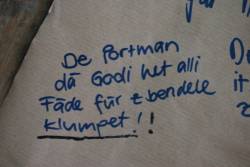 De Portman
dä Godi het alli
Fäde für z bendele
Klumpet!!